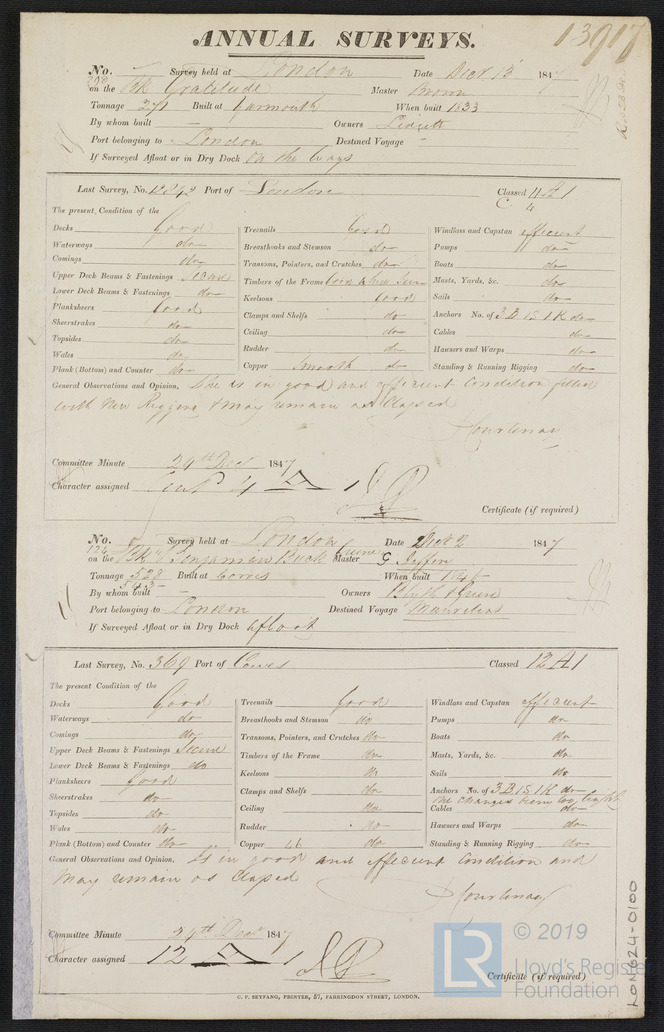 ANNUAL SURVEYS.
13917
No. 398 Survey held at London Date Decr 13 1847
on the Bk Gratitude Master Brown
Tonnage 271 Built at Yarmouth When built 1833
By whom built — Owners Lidgett
Port belonging to London Destined Voyage —
If Surveyed Afloat or in Dry Dock on the Ways
Last Survey, No. Port of London Classed A1
The present Condition of the
Decks Good
Waterways do
Comings do
Upper Deck Beams & Fastenings Secure
Lower Deck Beams & Fastenings do
Planksheers Good
Sheerstrakes do
Topsides do
Wales do
Plank (Bottom) and Counter do
Treenails Good
Breasthooks and Stemson do
Transoms, Pointers, and Crutches do
Timbers of the Frame
Keelsons Good
Clamps and Shelfs do
Ceiling do
Rudder do
Copper Smooth do
Windlass and Capstan efficient
Pumps do
Boats do
Masts, Yards, &c. do
Sails do
Anchors No. of 3 B 1 S 1 K do
Cables do
Hawsers and Warps do
Standing & Running Rigging do
General Observations and Opinion. She is in good and efficient Condition fitted
with New Rigging & may remain as Classed
Courtenay
Committee Minute 29th Decr 1847
Character assigned A 1
Certificate (if required)
No. Survey held at London Date 1847
on the Bk Benjamin Buck Greene Master
Tonnage 528 Built at Cowes When built 1846
543
By whom built — Owners Blyth & Greene
Port belonging to London Destined Voyage Mauritius
If Surveyed Afloat or in Dry Dock afloat
Last Survey, No. 369 Port of Cowes Classed 12 A1
The present Condition of the
Decks Good
Waterways do
Comings do
Upper Deck Beams & Fastenings Secure
Lower Deck Beams & Fastenings do
Planksheers Good
Sheerstrakes do
Topsides do
Wales do
Plank (Bottom) and Counter do
Treenails Good
Breasthooks and Stemson do
Transoms, Pointers, and Crutches do
Timbers of the Frame do
Keelsons do
Clamps and Shelfs do
Ceiling do
Rudder do
Copper 46 do
Windlass and Capstan efficient
Pumps do
Boats do
Masts, Yards, &c. do
Sails do
Anchors No. of 3 B 1 S 1 K do
one changed being too light
Cables do
Hawsers and Warps do
Standing & Running Rigging do
General Observations and Opinion. Is in good and efficient Condition and
may remain as Classed
Courtenay
Committee Minute 29th Decr 1847
Character assigned 12 A 1
Certificate (if required)
C. F. SEYFANG, PRINTER, 57, FARRINGDON STREET, LONDON.
LON624-0100
© 2019
LR Lloyd's Register
Foundation